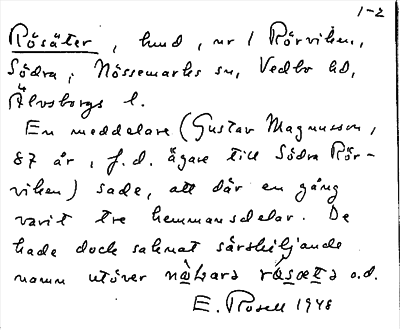 1-2
Rösäter, hmd, nr 1 Rörviken,
Södra, Nössemarks sn, Vedbo hd,
Älvsborgs l.
En meddelare (Gustav Magnusson,
87 år, f.d. ägare till Södra Rör-
viken) sade, att där en gång
varit tre hemmansdelar. De
hade dock saknat särskiljande
namn utöver o.d.
E. Rosell 1948